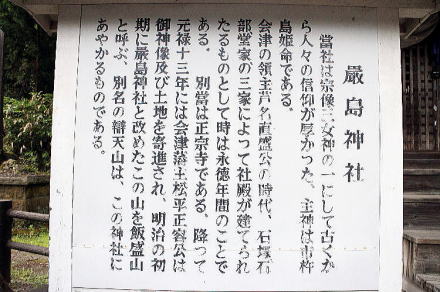 厳島神社
當社は宗像三女神の一にして古くか
ら人々の信仰が厚かった、主神は市杵
島姫命である。
会津の領主芦名直盛公の時代、石塚石
部堂家の三家によって社殿が建てられ
たるものとして時は永徳年間のことで
ある。　別當は正宗寺である、降って
元禄十三年には会津藩主松平正容公は
御神像及び土地を寄進され、明治の初
期に厳島神社と改めたこの山を飯盛山
と呼ぶ、別名の辯天山は、この神社に
あやかるものである。